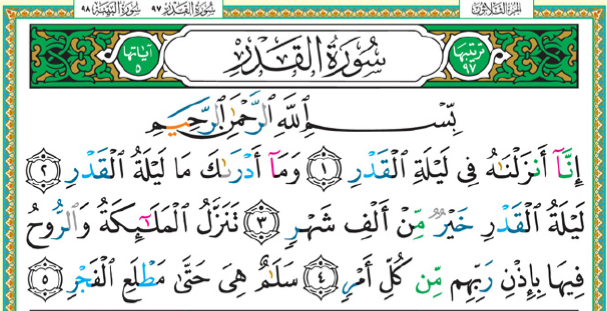 الجزء الثلاثون سورة القدر ٩٧ سورة البينة ٩٨
ترتيبها ٩٧ سُورَةُ القَدْرِ آياتها ٥
بِسْمِ ٱللَّهِ ٱلرَّحْمَٰنِ ٱلرَّحِيمِ
إِنَّآ أَنزَلْنَٰهُ فِى لَيْلَةِ ٱلْقَدْرِ ١ وَمَآ أَدْرَىٰكَ مَا لَيْلَةُ ٱلْقَدْرِ ٢
لَيْلَةُ ٱلْقَدْرِ خَيْرٌ مِّنْ أَلْفِ شَهْرٍ ٣ تَنَزَّلُ ٱلْمَلَٰٓئِكَةُ وَٱلرُّوحُ
فِيهَا بِإِذْنِ رَبِّهِم مِّن كُلِّ أَمْرٍ ٤ سَلَٰمٌ هِىَ حَتَّىٰ مَطْلَعِ ٱلْفَجْرِ ٥